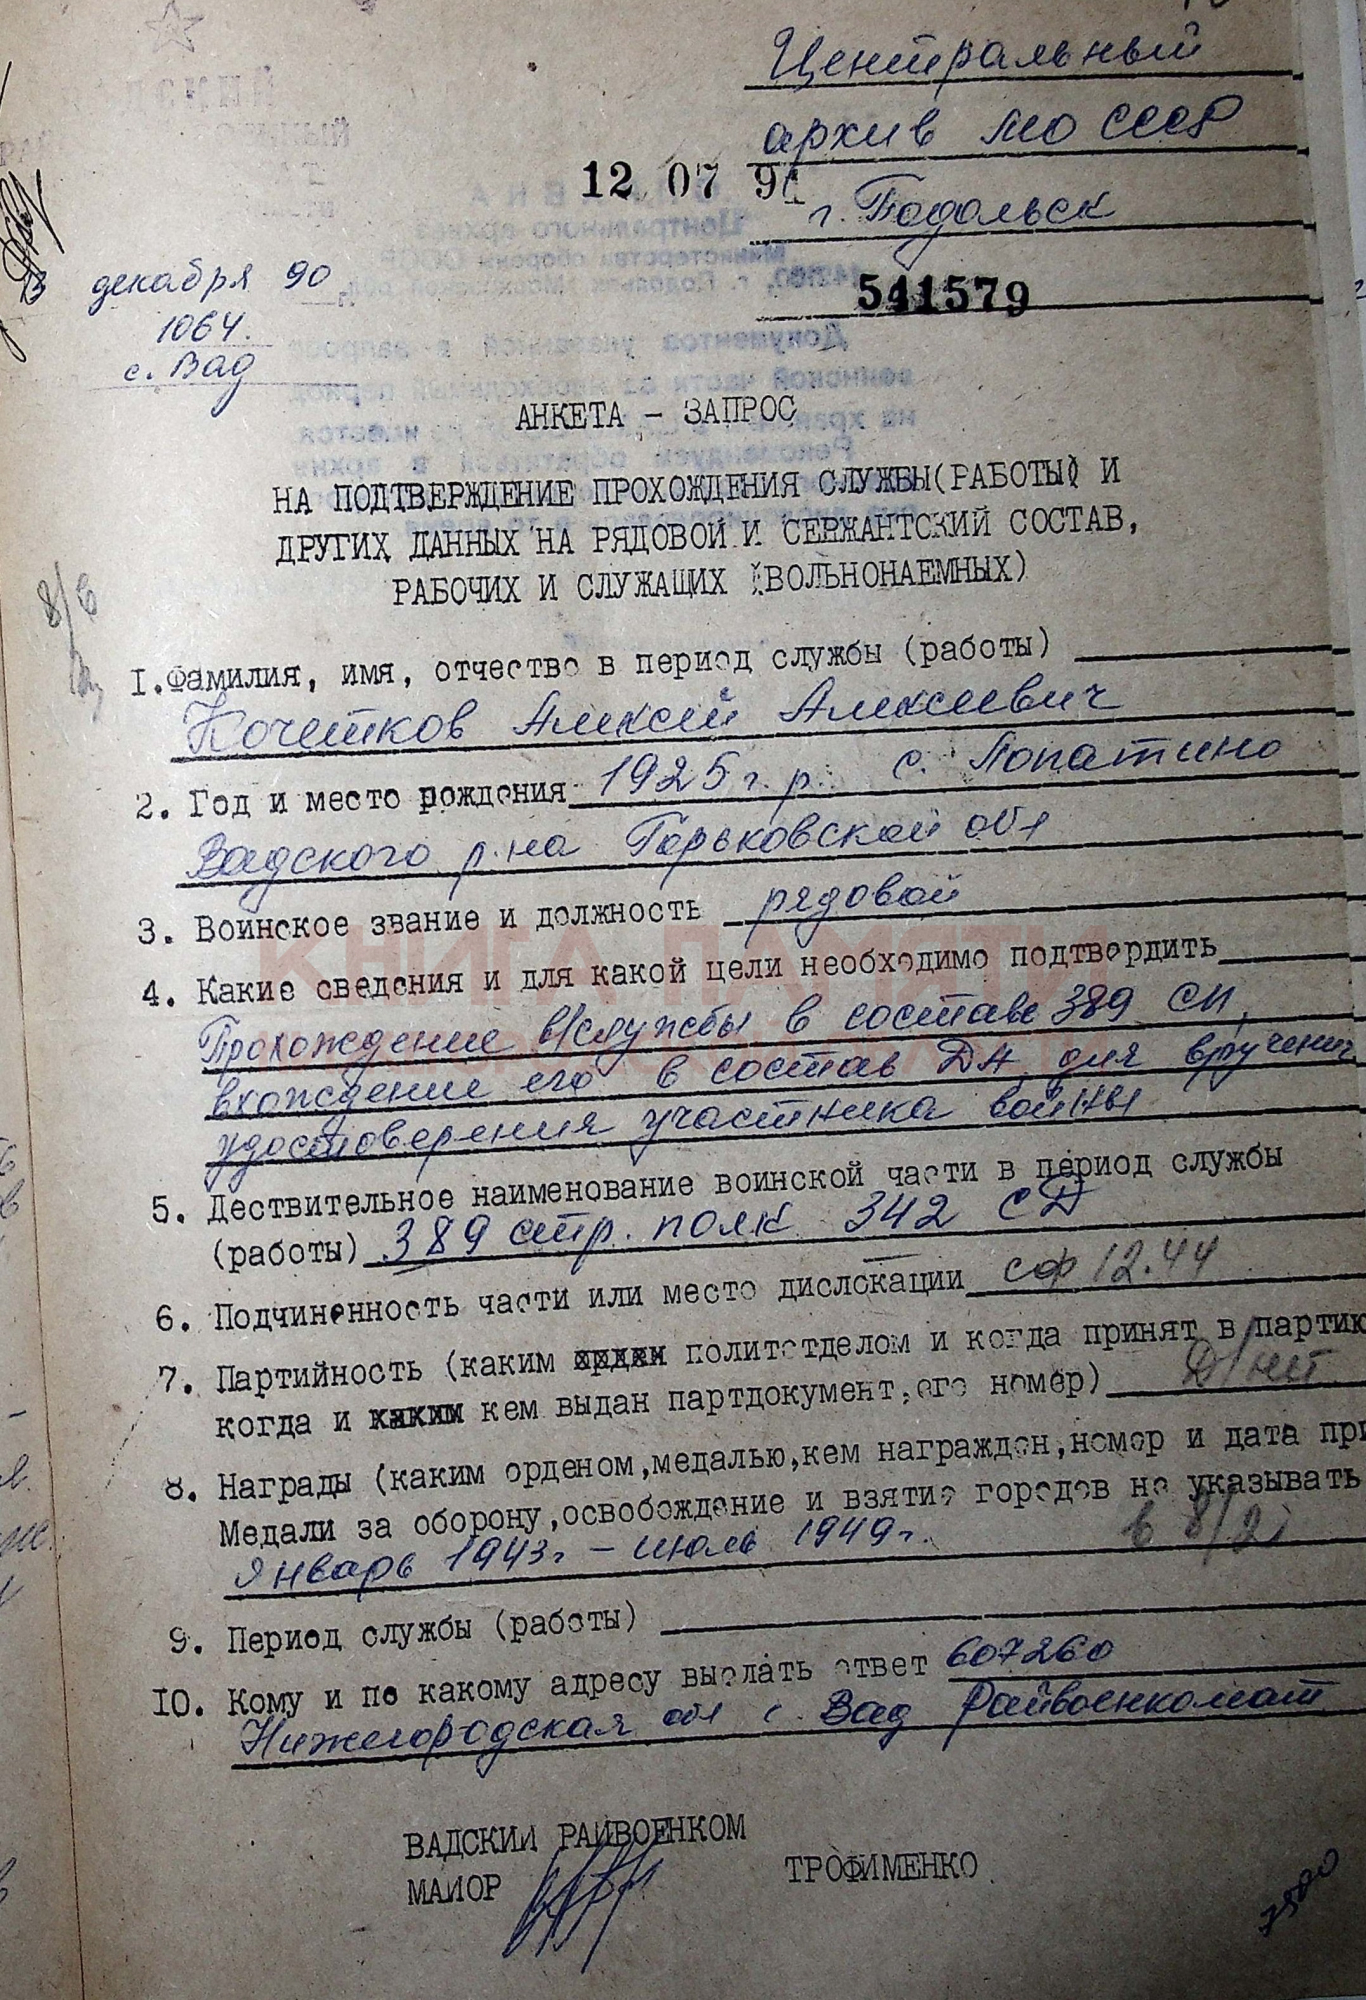 Центральный
архив МО СССР
12 07 91
г. Подольск
541579
декабря 90 г.
1064.
с. Вад
АНКЕТА - ЗАПРОС
НА ПОДТВЕРЖДЕНИЕ ПРОХОЖДЕНИЯ СЛУЖБЫ(РАБОТЫ) И
ДРУГИХ ДАННЫХ НА РЯДОВОЙ И СЕРЖАНТСКИЙ СОСТАВ,
РАБОЧИХ И СЛУЖАЩИХ (ВОЛЬНОНАЕМНЫХ)
8/6
I.Фамилия, имя, отчество в период службы (работы)
Кочетков Алексей Алексеевич
2. Год и место рождения 1925 г. р. с. Лопатино
Вадского р-на Горьковской обл
3. Воинское звание и должность рядовой
4. Какие сведения и для какой цели необходимо подтвердить
КНИГА ПАМЯТИ
Прохождение в/службы в составе 389 СП,
вхождение его в состав ДА для вручения
удостоверения участника войны
5. Дествительное наименование воинской части в период службы
(работы) 389 стр. полк 342 СД
6. Подчиненность части или место дислокации соф 12.44
7. Партийность (каким политотделом и когда принят в партию
когда и кем выдан партдокумент, его номер) Д/нет
8. Награды (каким орденом,медалью,кем награжден,номер и дата при
Медали за оборону,освобождение и взятие городов не указывать
в 8/21
январь 1943г - июль 1949г.
9. Период службы (работы)
IO. Кому и по какому адресу выслать ответ 607260
Нижегородская обл с. Вад Райвоенкомат
ВАДСКИЙ РАЙВОЕНКОМ
МАЙОР ТРОФИМЕНКО